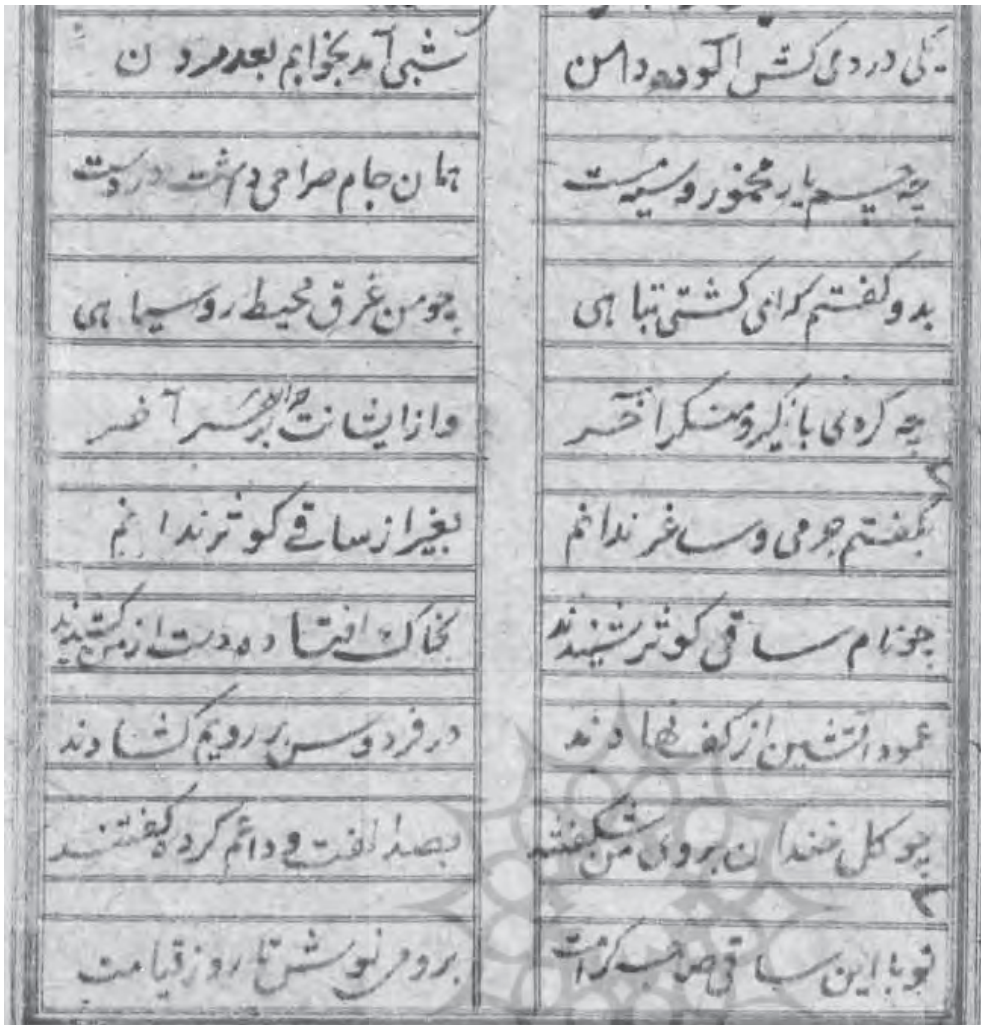 یکی دردی کش آلوده دامن شبی آمد بخوابم بعد مردن
چه چشم یار مخمور و سیه مست همان جام صراحی داشت در دست
بدو گفتم که ای کشتی تباهی چو من غرق محیط روسیاهی
چه کردی با نکیر و منکر آخر وز ایشانت آخر
بگفتم جز می و ساغر ندانم بغیر از ساقی کوثر ندانم
چو نام ساقی کوثر شنیدند بخاک افتاده دست از من کشیدند
عمود آتشین از کف نهادند در فردوس بر رویم کشادند
چو کل خندان بروی من شکفتند بصد الفت وداعم کرده گفتند
تو با این ساقی صاحب کرامت برو می نوش تا روز قیامت